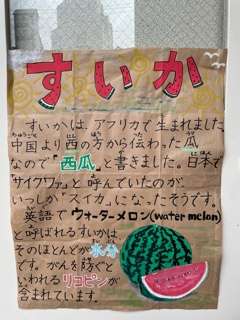 すいか
すいかは、アフリカで生まれました。
中国より西の方から伝わった瓜
なので「西瓜」と書きました。日本で
「サイクワァ」と呼んでいたのが、
いつしか「スイカ」になったそうです。
英語でウォーターメロン(water melon)
と呼ばれるすいかは、
そのほとんどが水分
です。がんを防ぐと
いわれるリコピンが
含まれています。